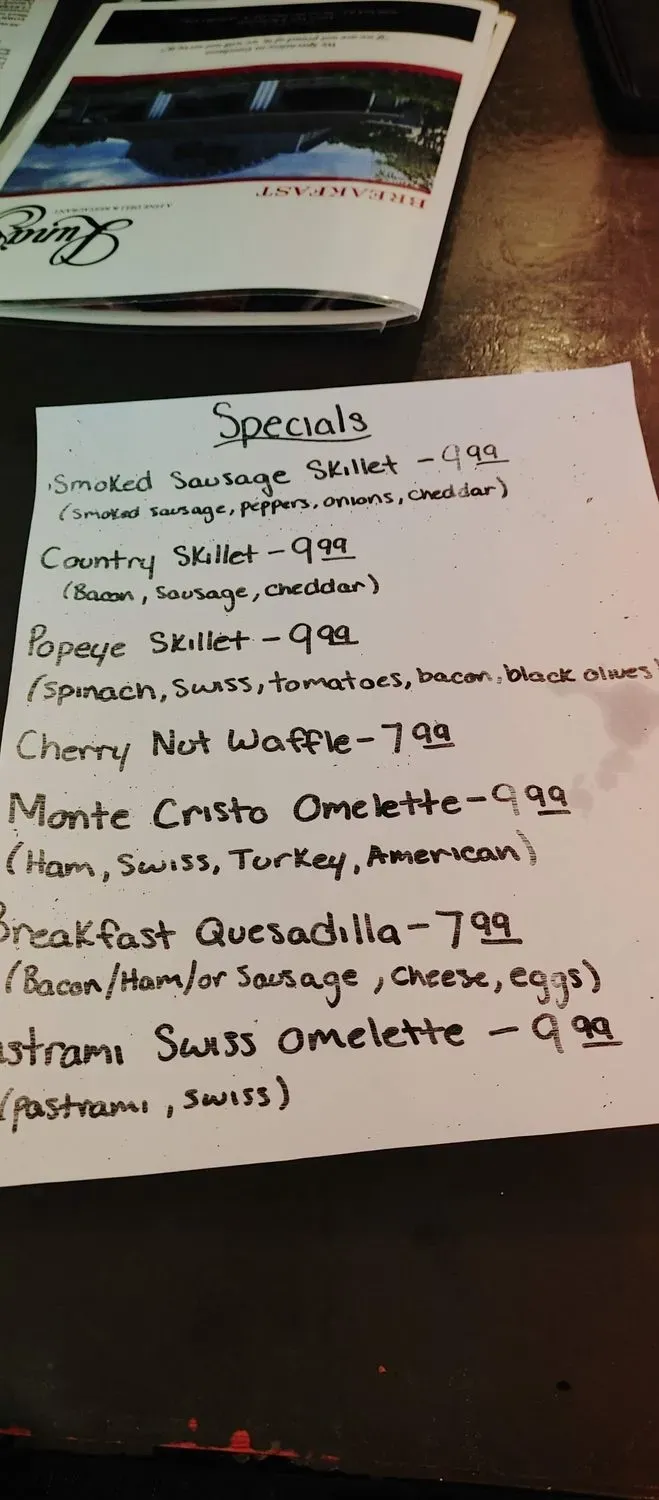 "If we are not proud of it, we will not serve it."
BREAKFAST
A FINE DELI & RESTAURANT
Specials
Smoked Sausage Skillet - 9 99
(Smoked sausage, peppers, onions, cheddar)
Country Skillet - 9 99
(Bacon, Sausage, cheddar)
Popeye Skillet - 9 99
(spinach, Swiss, tomatoes, bacon, black olives)
Cherry Nut Waffle - 7 99
Monte Cristo Omelette - 9 99
(Ham, Swiss, Turkey, American)
Breakfast Quesadilla - 7 99
(Bacon/Ham/or Sausage, cheese, eggs)
astrami Swiss omelette - 9 99
(pastrami, swiss)